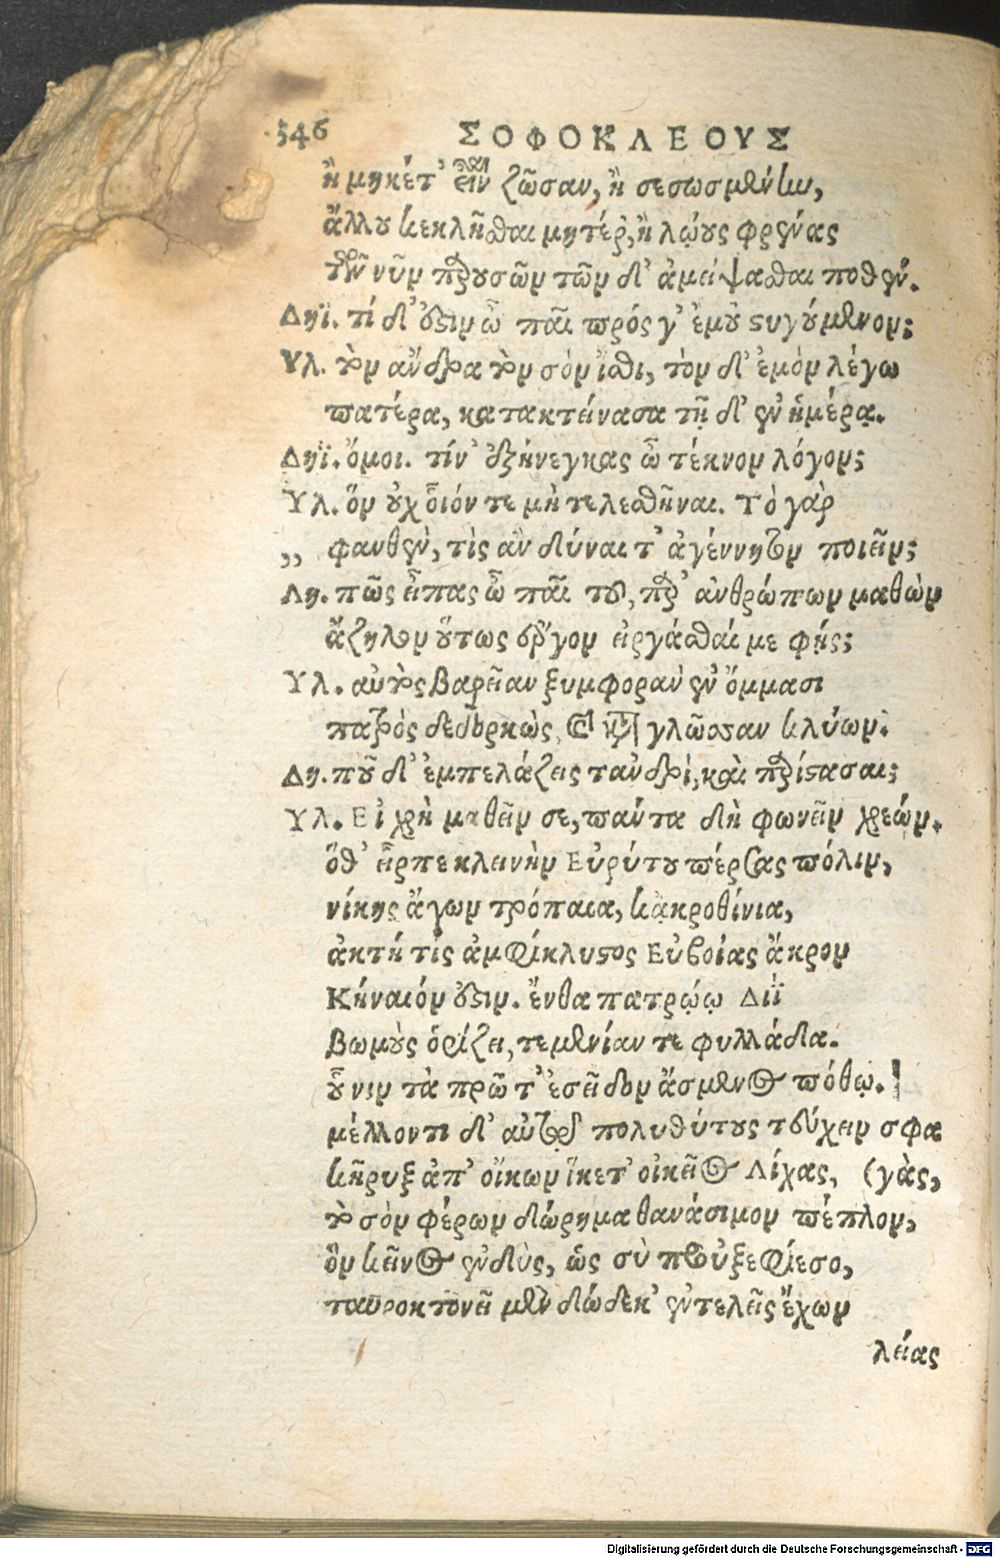 346 ΣΟΦΟΚΛΕΟΥΣ
ἢ μηκέτ' εἶναι ζῶσαν, ἢ σεσωσμένην,
ἄλλου κεκλῆσθαι μητέρ', ἢ λῴους φρένας
τῶν νῦν παρουσῶν τῶν δ' ἀμείψασθαι ποθέν.
Δηϊ. τί δ' ὅστιν ὦ παῖ πρός γ' ἐμοῦ στυγούμενον;
Υλ. τὸν ἄνδρα τὸν σὸν ἴσθι, τὸν δ' ἐμὸν λέγω
πατέρα, κατακτείνασα τῇ δ' ἐν ἡμέρᾳ.
Δηϊ. ὄμοι. τίν' ἐξήνεγκας ὦ τέκνον λόγον;
Υλ. ὃν οὐχ οἷόν τε μὴ τελεσθῆναι. Τὸ γὰρ
„ φανθὲν, τὶς ἂν δύναιτ' ἀγέννητον ποιεῖν;
Δη. πῶς εἶπας ὦ παῖ τοῦ, παρ' ἀνθρώπων μαθὼν
ἄζηλον οὕτως ἔργον εἰργάσθαί με φῄς;
Υλ. αὐτὸς βαρεῖαν ξυμφορὰν ἐν ὄμμασι
πατρὸς δεδορκὼς, καὶ οὐ κατὰ γλῶσσαν κλύων.
Δη. ποῦ δ' ἐμπελάζεις τἀνδρὶ, καὶ παρίστασαι;
Υλ. Εἰ χρὴ μαθεῖν σε, πάντα δὴ φωνεῖν χρεών.
ὅθ' εἷρπε κλεινὴν Εὐρύτου πέρσας πόλιν,
νίκης ἄγων τρόπαια, κἀκροθίνια,
ἀκτή τὶς ἀμφίκλυστος Εὐβοίας ἄκρον
Κήναιόν ὅστιν. ἔνθα πατρῴῳ Διῒ
βωμοὺς ὁρίζει, τεμενίαν τε φυλλάδα.
οὗ νιν τὰ πρῶτ' ἐσεῖδον ἄσμενος πόθῳ.
μέλλοντι δ' αὐτῷ πολυθύτους τεύχειν σφα
κῆρυξ ἀπ' οἴκων ἵκετ' οἰκεῖος Λίχας, (γὰς,
τὸ σὸν φέρων δώρημα θανάσιμον πέπλον,
ὃν κεῖνος ἐνδὺς, ὡς σὺ προὐξεφίεσο,
ταυροκτονεῖ μὲν δώδεκ' ἐντελεῖς ἔχων
λείας
Digitalisierung gefördert durch die Deutsche Forschungsgemeinschaft - DFG